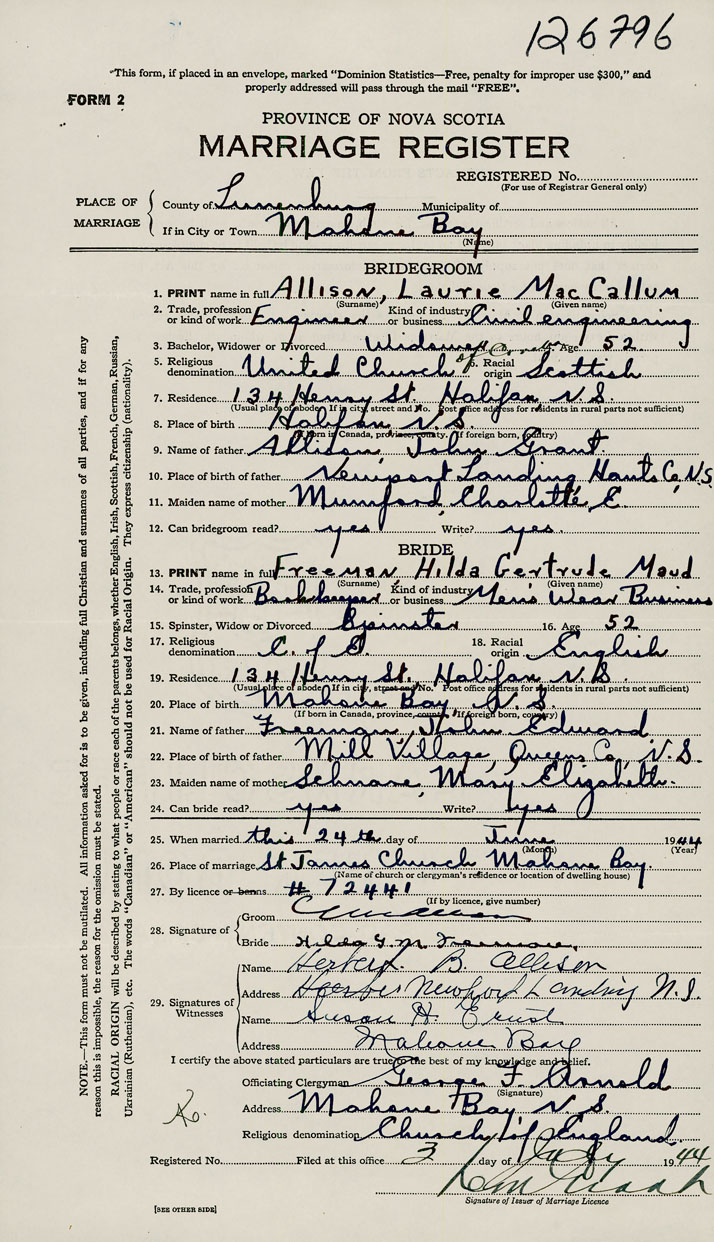 126796
"This form, if placed in an envelope, marked "Dominion Statistics—Free, penalty for improper use $300," and
properly addressed will pass through the mail "FREE".
FORM 2
PROVINCE OF NOVA SCOTIA
MARRIAGE REGISTER
REGISTERED No.
(For use of Registrar General only)
PLACE OF MARRIAGE
County of Lunenburg Municipality of
If in City or Town Mahone Bay
(Name)
BRIDEGROOM
1. PRINT name in full Allison, Laurie MacCallum
(Surname) (Given name)
2. Trade, profession or kind of work Engineer Kind of industry or business Civil engineering
3. Bachelor, Widower or Divorced Widower Age 52
5. Religious denomination United Church of Canada 6. Racial origin Scottish
7. Residence 134 Henry St. Halifax N.S.
(Usual place of abode. If in city, street and No. Post office address for residents in rural parts not sufficient)
8. Place of birth Halifax N.S.
(If born in Canada, province, county. If foreign born, country)
9. Name of father Allison, John Grant
10. Place of birth of father Newport Landing Hants Co, N.S.
11. Maiden name of mother Mumford, Charlotte, E.
12. Can bridegroom read? yes Write? yes
BRIDE
13. PRINT name in full Freeman Hilda Gertrude Maud
(Surname) (Given name)
14. Trade, profession or kind of work Bookkeeper Kind of industry or business Men's Wear Business
15. Spinster, Widow or Divorced Spinster 16. Age 52
17. Religious denomination C. of E. 18. Racial origin English
19. Residence 134 Henry St. Halifax N.S.
(Usual place of abode. If in city, street and No. Post office address for residents in rural parts not sufficient)
20. Place of birth Mahone Bay N.S.
(If born in Canada, province, county. If foreign born, country)
21. Name of father Freeman, John Edward
22. Place of birth of father Mill Village, Queens Co, N.S.
23. Maiden name of mother Schnare, Mary Elizabeth.
24. Can bride read? yes Write? yes
25. When married this 24th day of June 1944
(Month) (Year)
26. Place of marriage St James Church Mahone Bay.
(Name of church or clergyman's residence or location of dwelling house)
27. By licence or banns # 72441
(If by licence, give number)
28. Signature of
Groom
Bride Hilda G. M. Freeman
29. Signatures of Witnesses
Name Herbert B. Allison
Address Newport Landing N.S.
Name Susan H. Ernst
Address Mahone Bay
I certify the above stated particulars are true to the best of my knowledge and belief.
Officiating Clergyman George F. Arnold
(Signature)
Address Mahone Bay N.S.
Religious denomination Church of England.
Registered No. Filed at this office 3 day of July 1944
Signature of Issuer of Marriage Licence
[SEE OTHER SIDE]
NOTE.—This form must not be mutilated. All information asked for is to be given, including full Christian and surnames of all parties, and if for any
reason this is impossible, the reason for the omission must be stated.
RACIAL ORIGIN will be described by stating to what people or race each of the parents belongs, whether English, Irish, Scottish, French, German, Russian,
Ukrainian (Ruthenian), etc. The words "Canadian" or "American" should not be used for Racial Origin. They express citizenship (nationality).